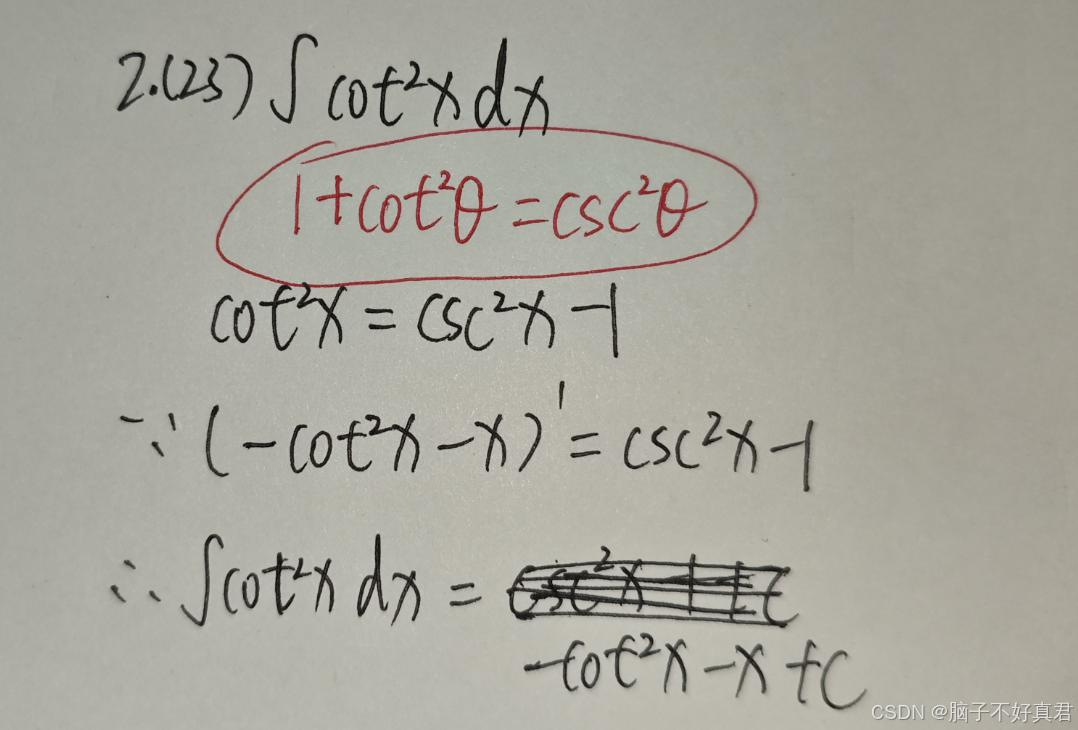 2.(23) ∫ cot²x dx
1+cot²θ=csc²θ
cot²x = csc²x -1
∵ (-cot²x-x)' = csc²x-1
∴ ∫cot²x dx =
-cot²x-x+C
CSDN @脑子不好真君